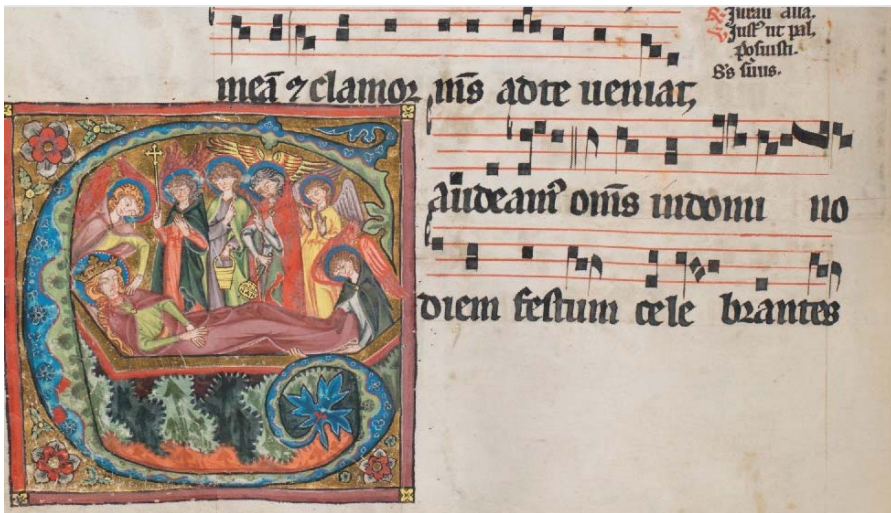 R. Iurau alla.
V. Just᷒ ut pal,
posuisti.
meā ⁊ clamoꝛ m̄s adte ueniat,
Gaudeam᷒ om̄s indomi no
diem festum cele brantes